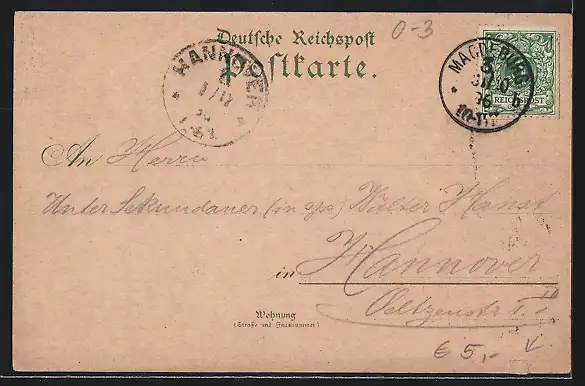 0-3
Deutsche Reichspost
Postkarte.
HANNOVER
MAGDEBURG
REICHSPOST
An Herrn
Unter Sekundaner (in spe) Walter Hanst
in Hannover
Wohnung
(Straße und Hausnummer)
€ 5,-